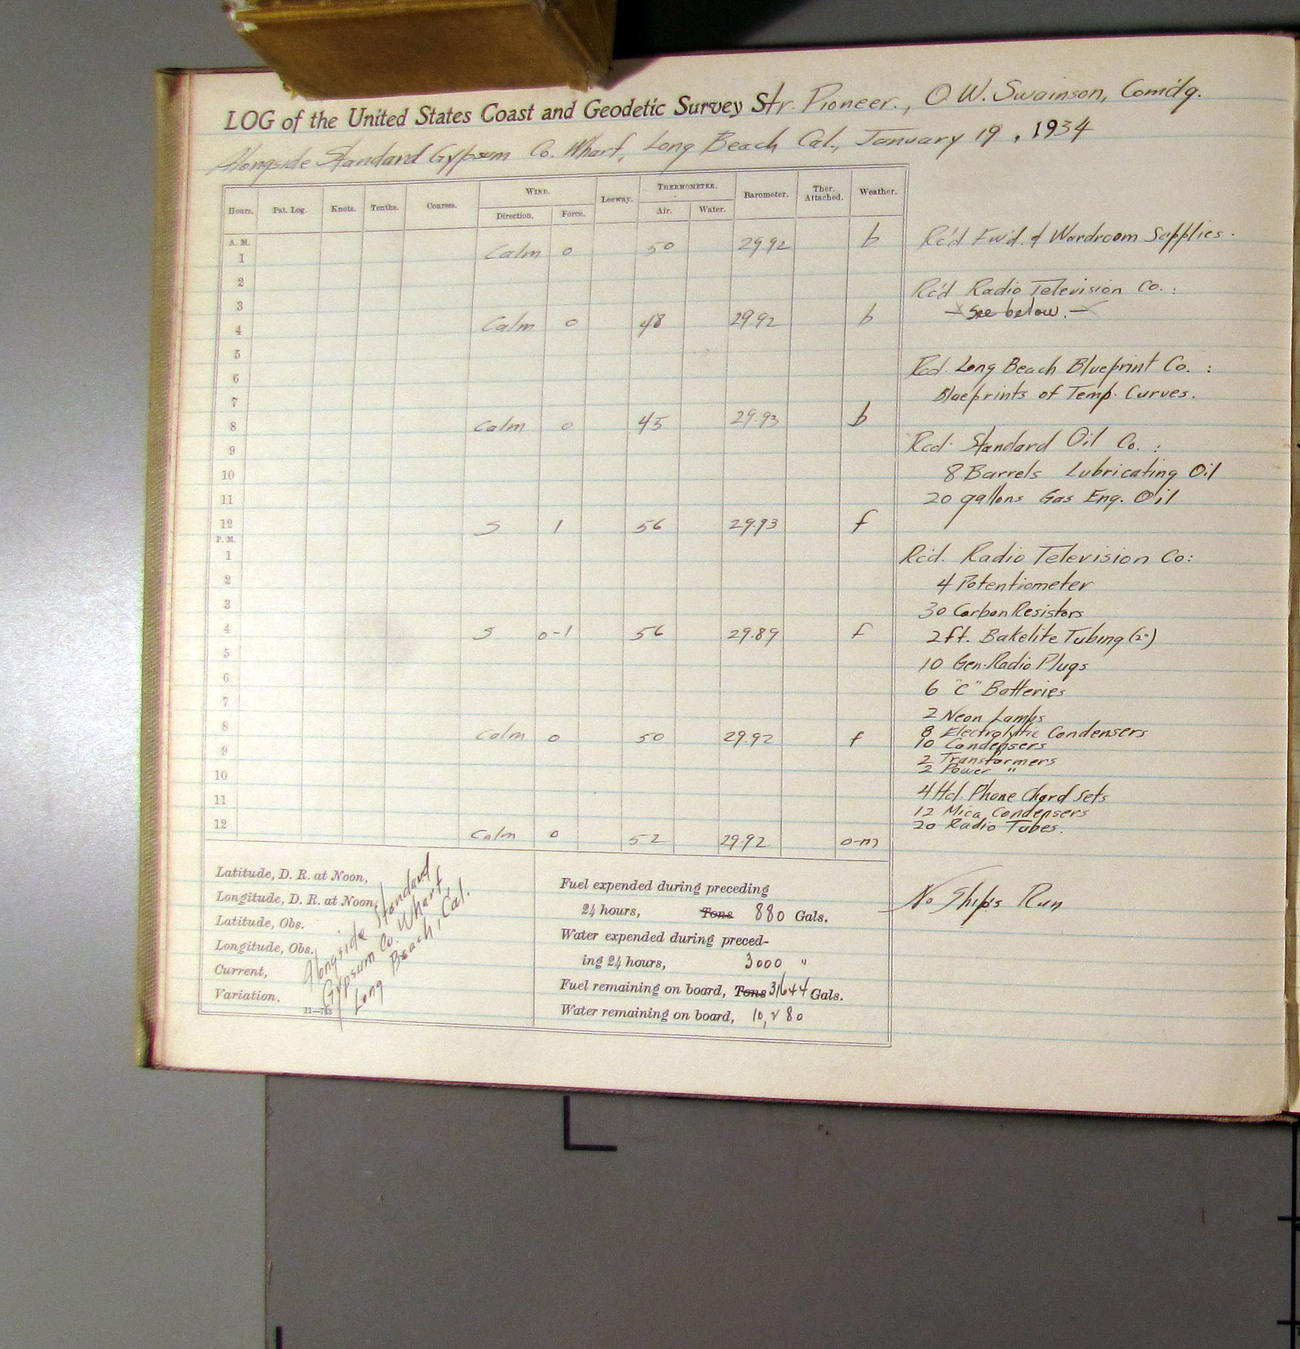 LOG of the United States Coast and Geodetic Survey Str. Pioneer., O. W. Swainson, Comd'g.
Alongside Standard Gypsum Co. Wharf, Long Beach Cal., January 19, 1934
Hours. Pat. Log. Knots. Tenths. Courses. WIND. Leeway. THERMOMETER. Barometer. Ther. Attached. Weather.
Direction. Force. Air. Water.
A. M.
1 Calm 0 50 29.92 b
2
3
4 Calm 0 48 29.92 b
5
6
7
8 Calm 0 45 29.93 b
9
10
11
12 S 1 56 29.93 f
P. M.
1
2
3
4 S 0-1 56 29.89 f
5
6
7
8 Calm 0 50 29.92 f
9
10
11
12 Calm 0 52 29.92 o-m
Rc'd Fwd. & Wardroom Supplies.
Rc'd Radio Television Co.:
See below.
Rcd. Long Beach Blueprint Co. :
Blueprints of Temp. Curves.
Rcd. Standard Oil Co. :
8 Barrels Lubricating Oil
20 gallons Gas Eng. Oil
Rc'd. Radio Television Co:
4 Potentiometer
30 Carbon Resistors
2 ft. Bakelite Tubing (2")
10 Gen. Radio Plugs
6 "C" Batteries
2 Neon Lamps
8 Electrolytic Condensers
10 Condensers
2 Transformers
2 Power "
4 Hd. Phone Chord Sets
12 Mica Condensers
20 Radio Tubes.
No Ship's Run
Latitude, D. R. at Noon,
Longitude, D. R. at Noon,
Latitude, Obs.
Longitude, Obs.
Current,
Variation,
Alongside Standard
Gypsum Co. Wharf,
Long Beach, Cal.
Fuel expended during preceding
24 hours, Tons 880 Gals.
Water expended during preced-
ing 24 hours, 3000 "
Fuel remaining on board, Tons 31644 Gals.
Water remaining on board,